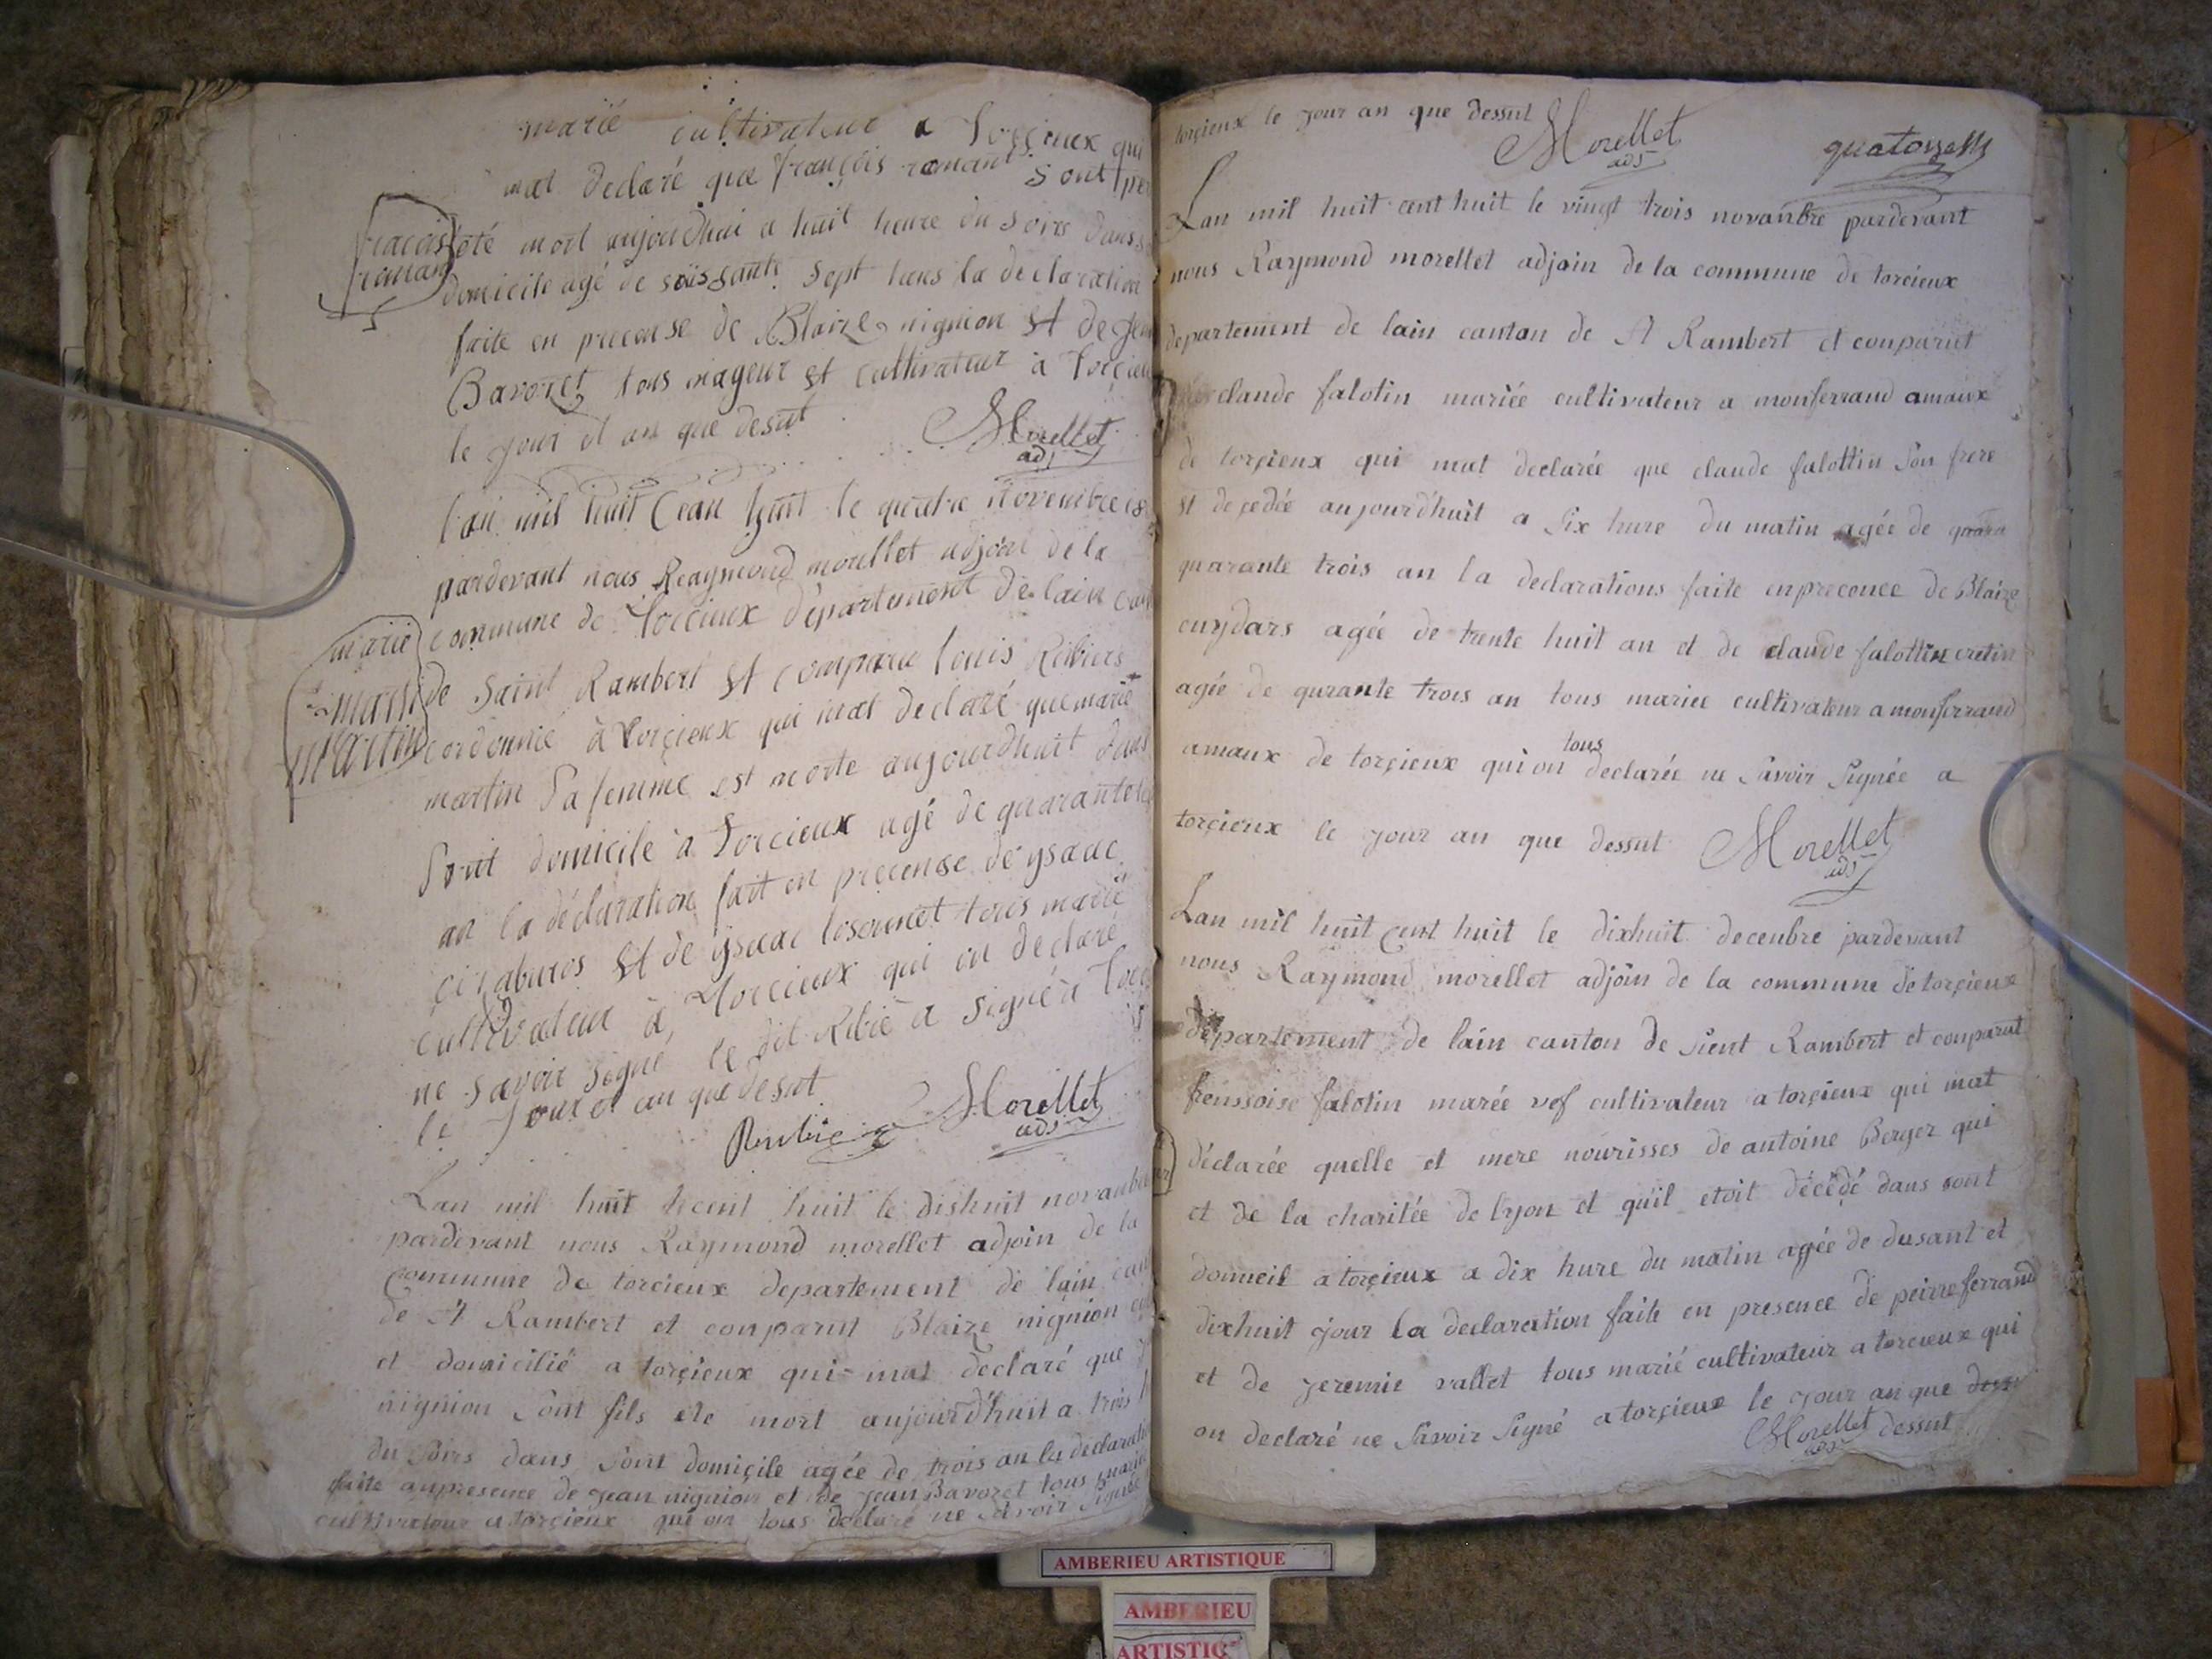 marié cultivateur a Torcieux qui
mat declaré que françois romant sont per
été mort aujoudhui a huit heure du soirs dans s
domicile agé de soissante sept hans la declaration
faite en precense de Blaize nignion St de Jean
Bavozet tous mageur St cultivateur à Torcieu
le jour et an que desut
Morellet
adj
francois
roman
l'an mil huit Cean huit le quatre novembre
pardevant nous Reaymond morellet adjoin de la
commune de Torcieux département de lain can
de Saint Rambert St comparu louis Ribiers
cordonnié à Torcieux qui mat declaré que marie
martin Sa femme est morte aujourdhuit dans
Sont domicile à Torcieux agé de quarante
an la déclaration fait en precense de ysaac
St de ysaac tous marié
cultivateur à Torcieux qui on declaré
ne savoir signé le dit Ribié a signé à Torc
le Jour et an que desut
Morellet
adj
marie
martin
Lan mil huit cent huit le dishuit novanbre
pardevant nous Raymond morellet adjoin de la
Commune de torcieux departement de lain can
de St Rambert et conparut Blaize nignion
et domicilié a torçieux qui mat declaré que
nignion Sont fils ete mort aujourd'huit a trois h
du Soirs dans Sont domiçile agée de trois an la declaratio
faite anpresence de jean nignion et de jean Bavozet tous marié
cultivateur a torçieux qui on tous declaré ne Savoir Signée
torçieux le jour an que dessut
Morellet
adj
quatorze
Lan mil huit cent huit le vingt trois novanbre pardevant
nous Raymond morellet adjoin de la commune de torcieux
departement de lain canton de St Rambert et conparut
claude falotin mariée cultivateur a monferrand amaux
de torçieux qui mat declarée que claude falottin Son frere
St deçedée aujourd'huit a Six hure du matin agée de quara
quarante trois an la declarations faite enpreconce de Blaize
cuydars agée de trente huit an et de claude falottin cretin
agée de qurante trois an tous mariee cultivateur a monferrand
amaux de torçieux qui on tous declarée ne Savoir Signée a
torçieux le jour an que dessut
Morellet
adj
Lan mil huit Cent huit le dixhuit decenbre pardevant
nous Raymond morellet adjoin de la commune de torçieux
departement de lain canton de Sient Rambert et conparut
frenssoise falotin marée vef cultivateur a torçieux qui mat
déclarée quelle et mere nourisses de antoine Berger qui
et de la charitée de lyon et quil etoit décédé dans sont
domicil a torçieux a dix hure du matin agée de dusant et
dixhuit jour la declaration faite en presence de peirre ferrand
et de jeremie vallet tous marié cultivateur a torcieux qui
on declaré ne Savoir Signé a torçieux le jour an que dessu
dessut
Morellet
adj
AMBERIEU ARTISTIQUE
AMBERIEU
ARTISTIQ